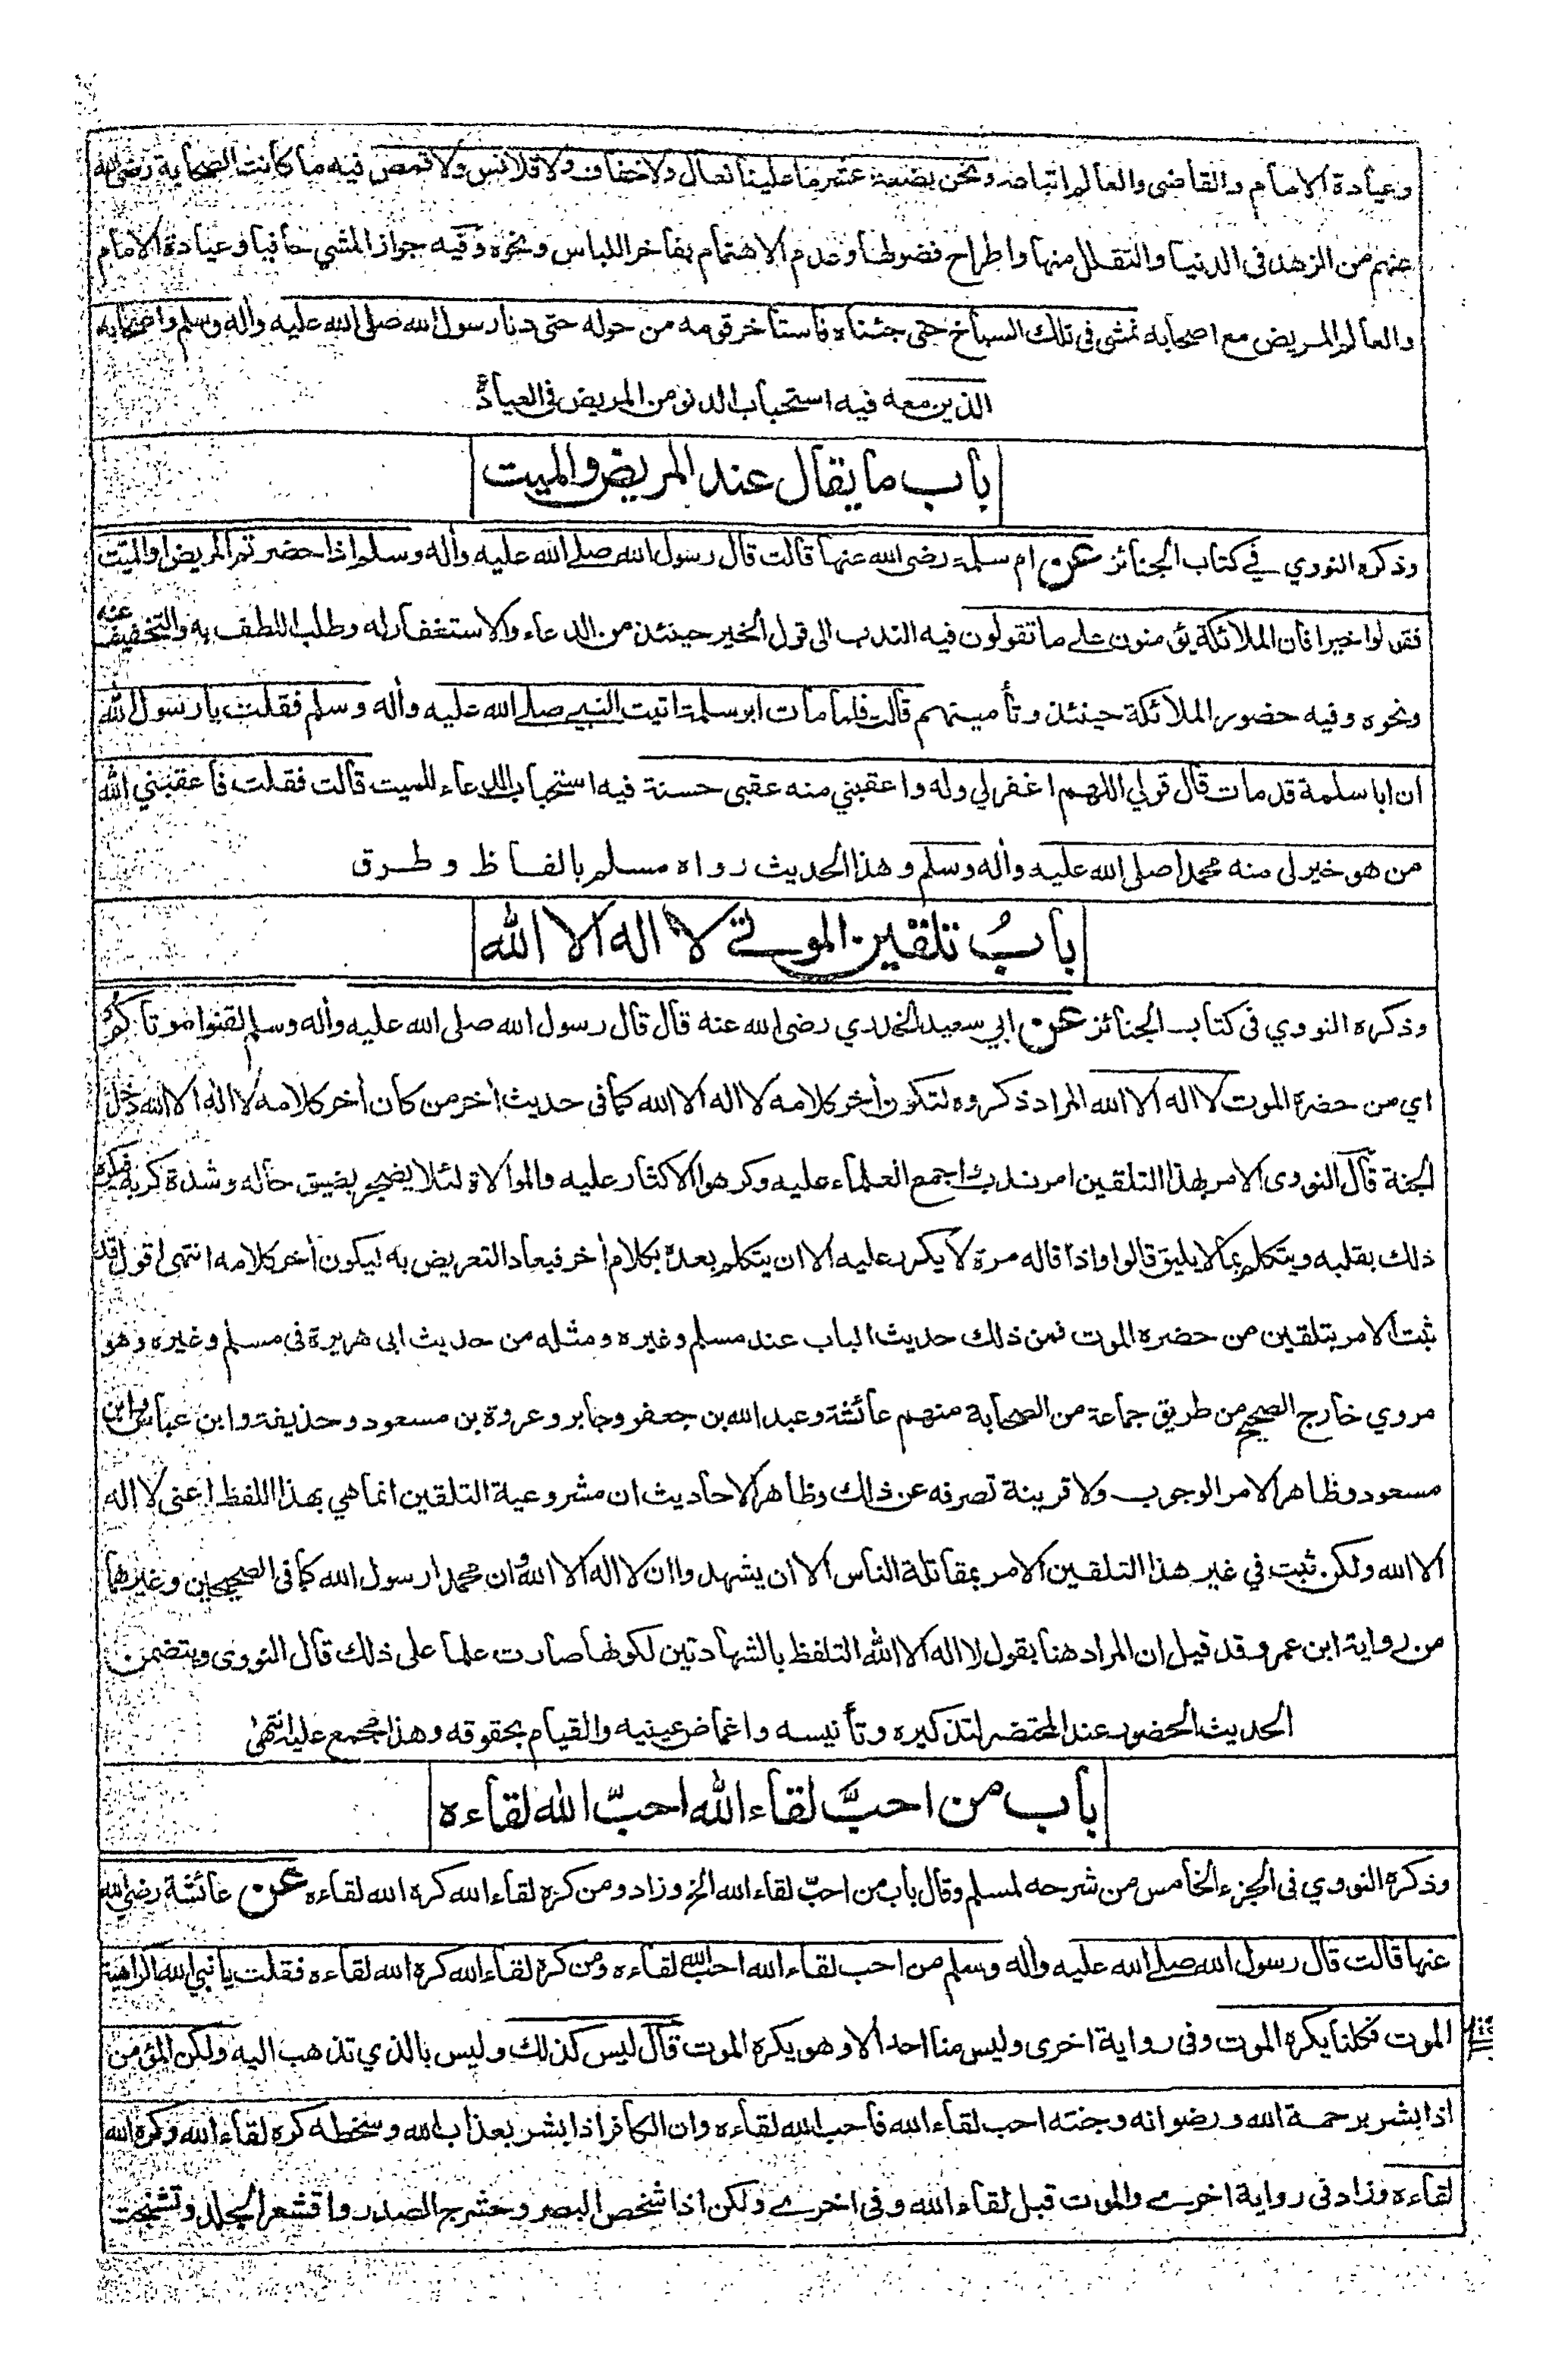 وعيادة الامام والقاضي والعالم اتباعه ونحن بضعة عشر ما علينا نعال ولا خفاف ولا قلانس ولا قمص فيه ما كانت الصحابة رضي الله
عنهم من الزهد في الدنيا والتقلل منها واطراح فضولها وعدم الاهتمام بفاخر اللباس ونحوه وفيه جواز المشي حافيا وعيادة الامام
والعالم المريض مع اصحابه نمشي في تلك السباخ حتى جئناه فاستأخر قومه من حوله حتى دنا رسول الله صلى الله عليه وأله وسلم واصحابه
الذين معه فيه استحباب الدنو من المريض في العيادة
باب ما يقال عند المريض والميت
وذكره النووي في كتاب الجنائز عن ام سلمة رضي الله عنها قالت قال رسول الله صلى الله عليه وأله وسلم اذا حضرتم المريض او الميت
فقولوا خيرا فان الملائكة يؤمنون على ما تقولون فيه الندب الى قول الخير حينئذ من الدعاء والاستغفار له وطلب اللطف به والتخفيف عنه
ونحوه وفيه حضور الملائكة حينئذ وتأمينهم قالت فلما مات ابو سلمة اتيت النبي صلى الله عليه وأله وسلم فقلت يا رسول الله
ان ابا سلمة قد مات قال قولي اللهم اغفر لي وله واعقبني منه عقبى حسنة فيه استحباب الدعاء للميت قالت فقلت فأعقبني الله
من هو خير لي منه محمدا صلى الله عليه وأله وسلم وهذا الحديث رواه مسلم بالفاظ وطرق
بابُ تلقين الموتى لا اله الا الله
وذكره النووي في كتاب الجنائز عن ابي سعيد الخدري رضي الله عنه قال قال رسول الله صلى الله عليه وأله وسلم لقنوا موتاكم
اي من حضره الموت لا اله الا الله المراد ذكروه لتكون أخر كلامه لا اله الا الله كما في حديث أخر من كان أخر كلامه لا اله الا الله دخل
الجنة قال النووى الامر بهذا التلقين امر ندب اجمع العلماء عليه وكرهوا الاكثار عليه والموالاة لئلا يضجر بضيق حاله وشدة كربه فيكره
ذلك بقلبه ويتكلم بما لا يليق قالوا واذا قاله مرة لا يكرر عليه الا ان يتكلم بعده بكلام أخر فيعاد التعريض به ليكون أخر كلامه انتهى اقول قد
ثبت الامر بتلقين من حضره الموت فمن ذلك حديث الباب عند مسلم وغيره ومثله من حديث ابى هريرة فى مسلم وغيره وهو
مروي خارج الصحيح من طريق جماعة من الصحابة منهم عائشة وعبد الله بن جعفر وجابر وعروة بن مسعود وحذيفة وابن عباس وابن
مسعود وظاهر الامر الوجوب ولا قرينة تصرفه عن ذلك وظاهر الاحاديث ان مشروعية التلقين انما هي بهذا اللفظ اعنى لا اله
الا الله ولكن ثبت في غير هذا التلقين الامر بمقاتلة الناس الا ان يشهدوا ان لا اله الا الله وان محمدا رسول الله كما فى الصحيحين وغيرهما
من رواية ابن عمر وقد قيل ان المراد هنا بقول لا اله الا الله التلفظ بالشهادتين لكونها صارت علما على ذلك قال النووى ويتضمن
الحديث الحضور عند المحتضر لتذكيره وتأنيسه واغماض عينيه والقيام بحقوقه وهذا مجمع عليه انتهى
باب من احبَّ لقاء الله احبّ الله لقاءه
وذكره النووي فى الجزء الخامس من شرحه لمسلم وقال باب من احبّ لقاء الله الخ وزاد ومن كره لقاء الله كره الله لقاءه عن عائشة رضي الله
عنها قالت قال رسول الله صلى الله عليه وأله وسلم من احب لقاء الله احب الله لقاءه ومن كره لقاء الله كره الله لقاءه فقلت يا نبي الله اكراهية
الموت فكلنا يكره الموت وفى رواية اخرى وليس منا احد الا وهو يكره الموت قال ليس كذلك وليس بالذي تذهب اليه ولكن المؤمن
اذا بشر برحمة الله ورضوانه وجنته احب لقاء الله فأحب الله لقاءه وان الكافر اذا بشر بعذاب الله وسخطه كره لقاء الله وكره الله
لقاءه وزاد فى رواية اخرى والموت قبل لقاء الله وفى اخرى ولكن اذا شخص البصر وحشرج الصدر واقشعر الجلد وتشنجت